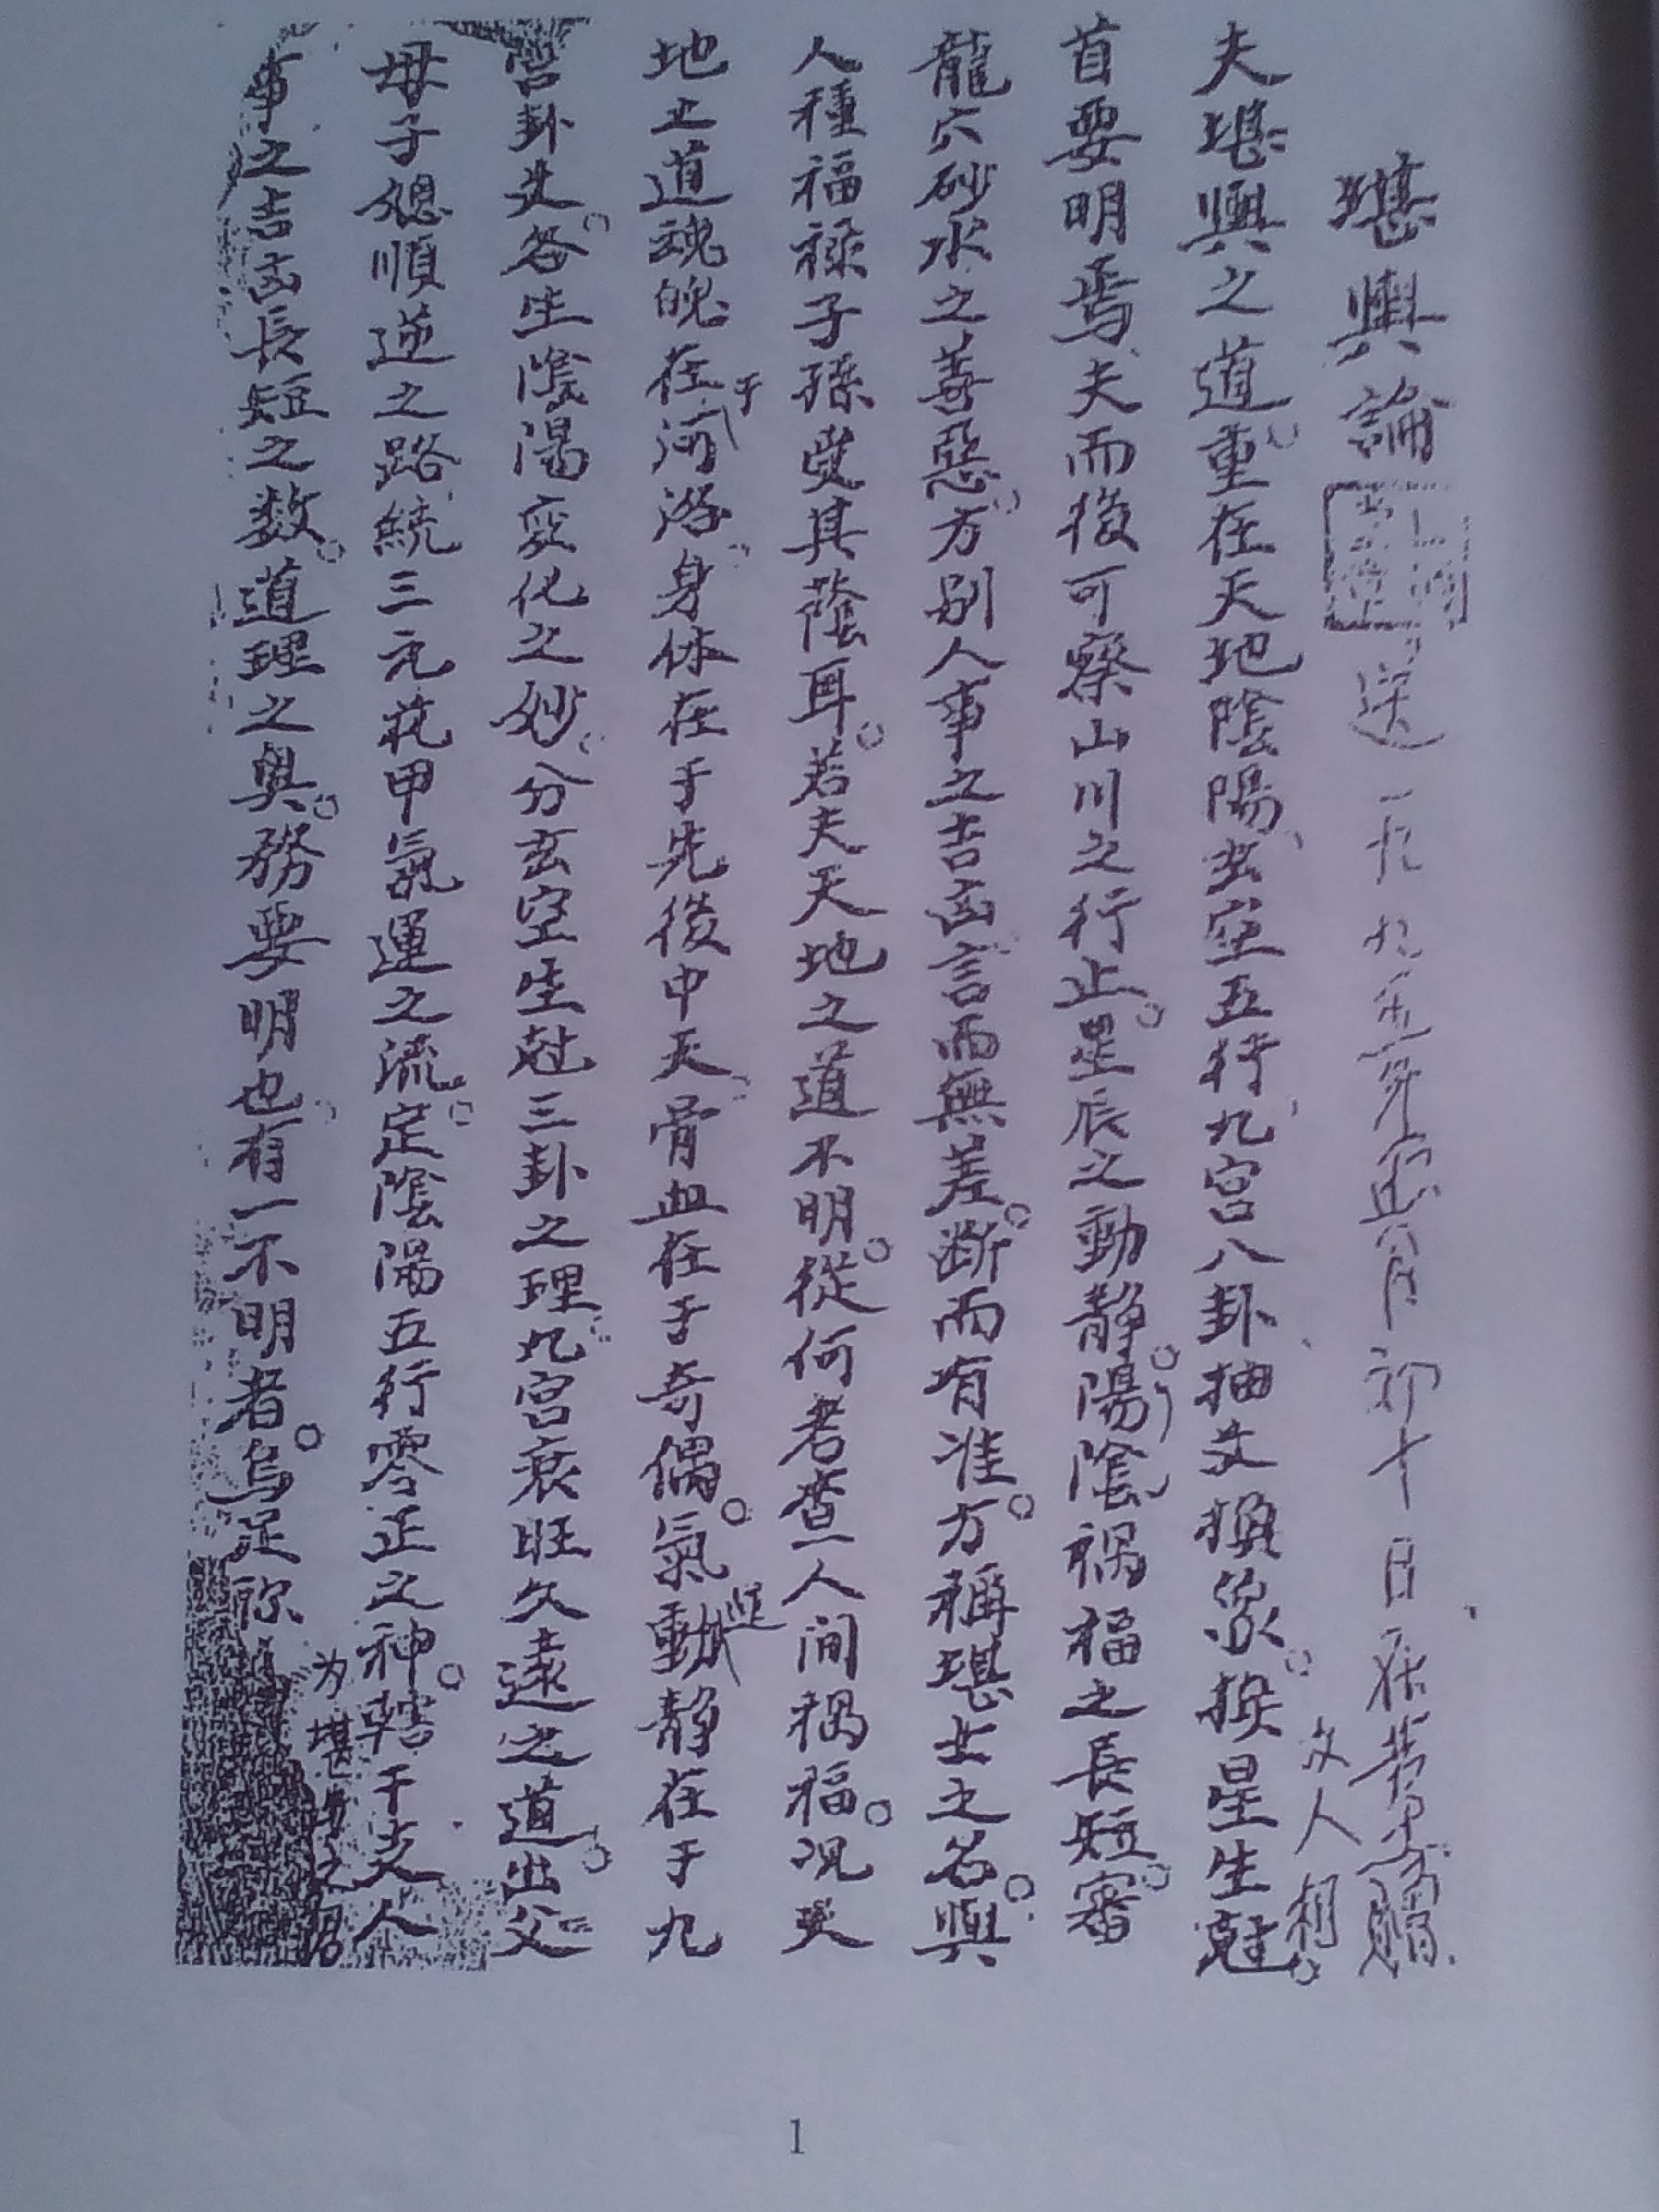 堪輿論
送一九九五年六月初十日
夫堪輿之道重在天地陰陽玄空五行九宮八卦抽爻換象。換星生尅。
首要明焉夫而後可察山川之行止。星辰之動静。陽陰禍福之長短。審
龍穴砂水之善惡方別人事之吉凶言而無差。断而有准。方稱堪士之名。與
人種福禄子孫受其蔭耳。若夫天地之道不明。從何考查人间禍福。况天
地之道魂魄在于河洛身体在于先後中天骨血在于奇偶。氣動静在于九
宮卦爻。各生陰陽变化之妙。分玄空生尅三卦之理。九宮衰旺久遠之道。出父
母子媳順逆之路統三元花甲氣運之流。定陰陽五行零正之神。轄干支人
事之吉凶長短之数。道理之奥。務要明也有一不明者。烏足称
为堪輿之
1